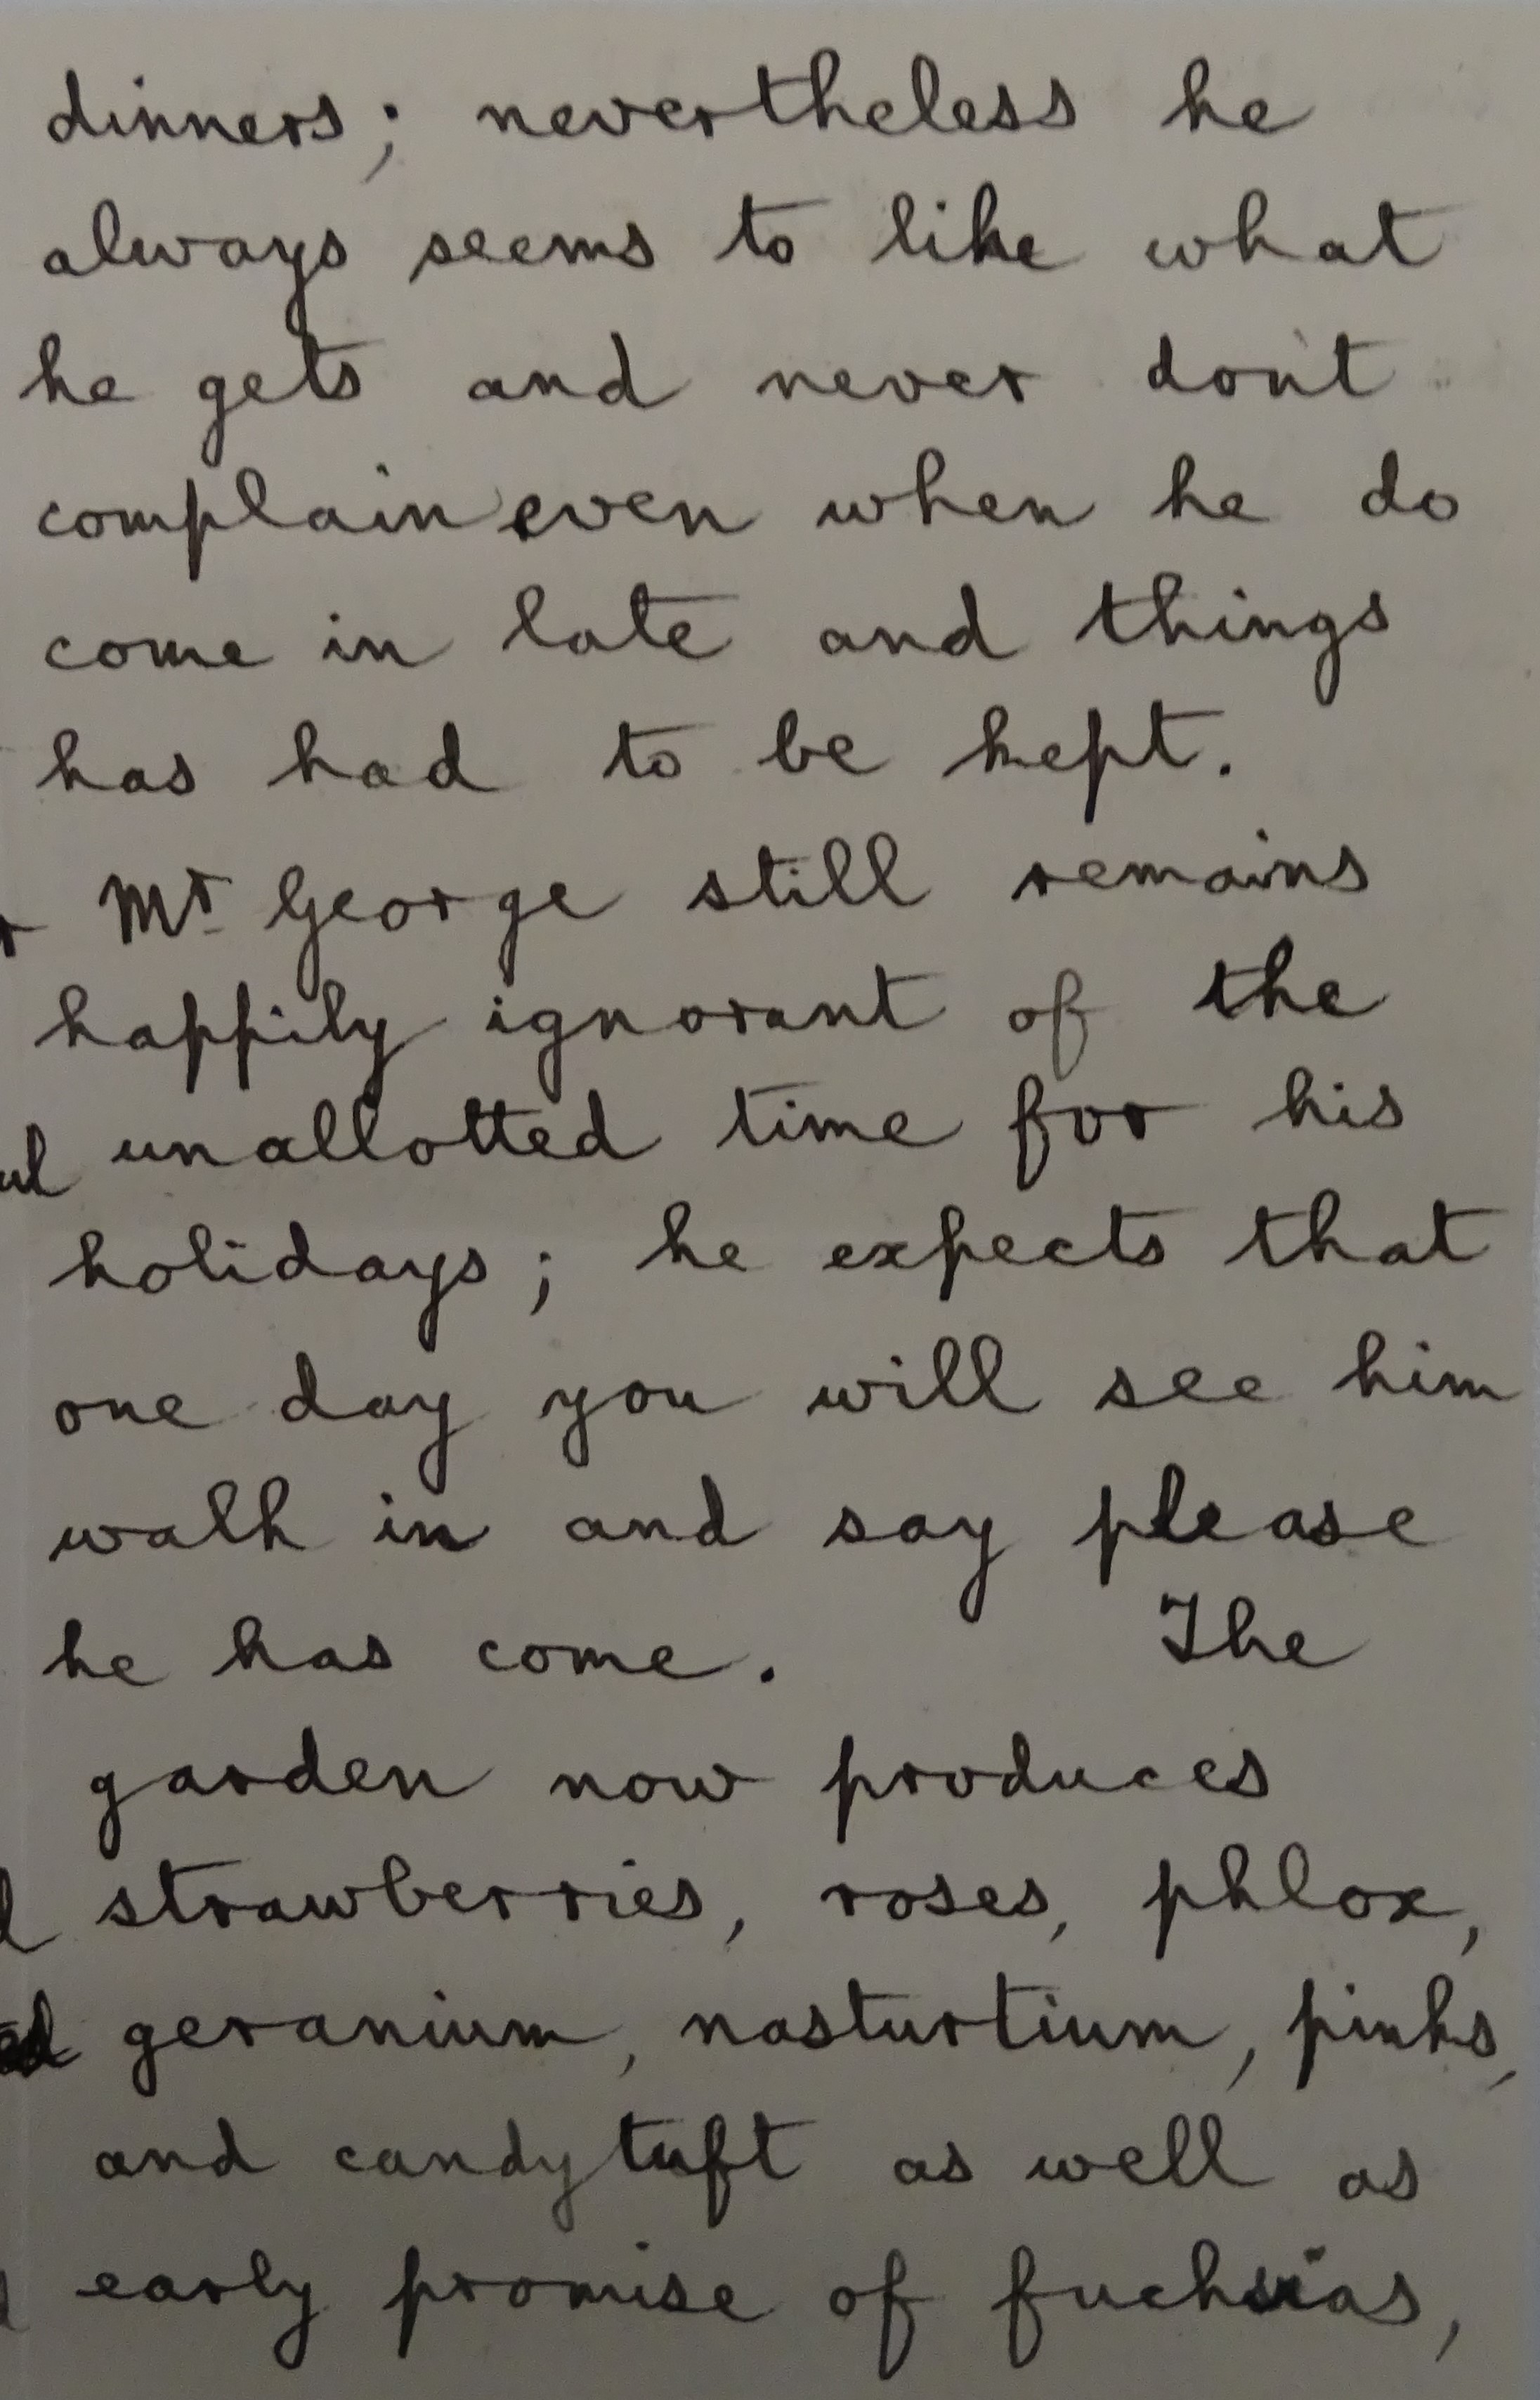 dinners; nevertheless he
always seems to like what
he gets and never don't
complain even when he do
come in late and things
has had to be kept.
Mr George still remains
happily ignorant of the
unallotted time for his
holidays; he expects that
one day you will see him
walk in and say please
he has come. The
garden now produces
strawberries, roses, phlox,
geranium, nasturtium, pinks,
and candytuft as well as
early promise of fuchsias,